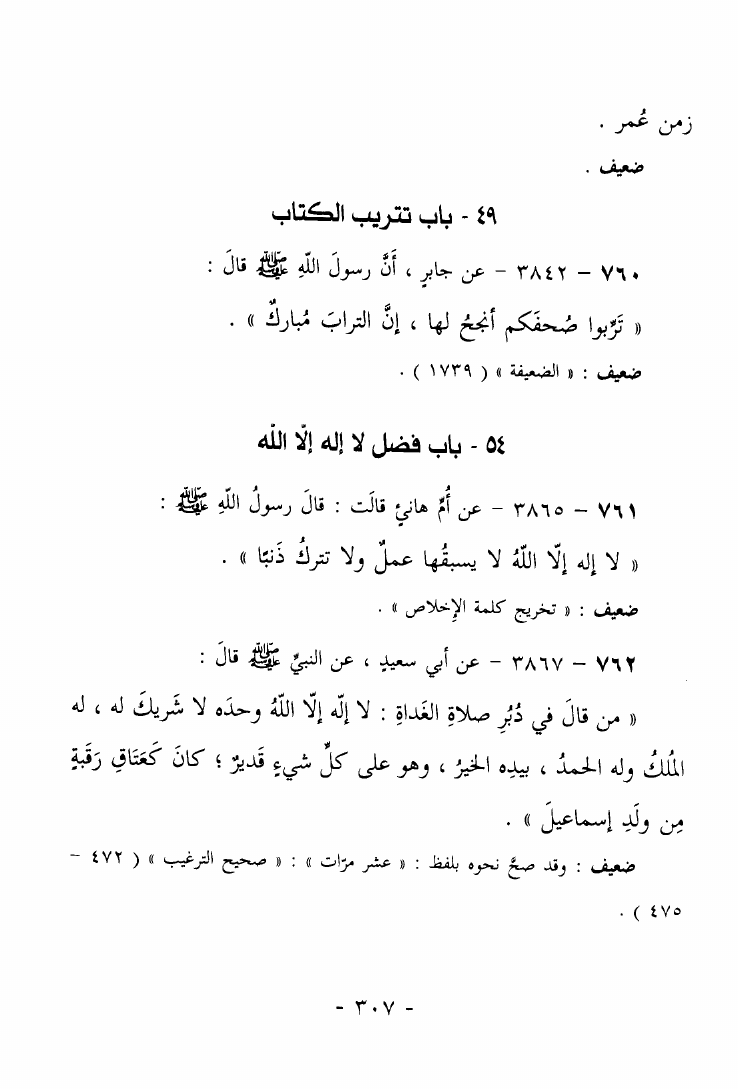 زمن عُمر .
ضعيف .
٤٩ - باب تتريب الكتاب
٧٦٠ - ٣٨٤٢ - عن جابرٍ ، أَنَّ رسولَ اللّهِ ﷺ قالَ :
« تَرِّبوا صُحفَكم أنجحُ لها ، إنَّ الترابَ مُباركٌ » .
ضعيف : « الضعيفة » ( ١٧٣٩ ) .
٥٤ - باب فضل لا إله إلّا اللّه
٧٦١ - ٣٨٦٥ - عن أُمِّ هانئٍ قالَت : قالَ رسولُ اللّهِ ﷺ :
« لا إله إلّا اللّهُ لا يسبقُها عملٌ ولا تتركُ ذَنبًا » .
ضعيف : « تخريج كلمة الإِخلاص » .
٧٦٢ - ٣٨٦٧ - عن أبي سعيدٍ ، عن النبيِّ ﷺ قالَ :
« من قالَ في دُبُرِ صلاةِ الغَداةِ : لا إلَه إلّا اللّهُ وحدَه لا شَريكَ له ، له
المُلكُ وله الحمدُ ، بيدِه الخيرُ ، وهو على كلِّ شيءٍ قَديرٌ ؛ كانَ كَعَتَاقِ رَقَبَةٍ
مِن ولَدِ إسماعيلَ » .
ضعيف : وقد صحَّ نحوه بلفظ : « عشر مرّات » : « صحيح الترغيب » ( ٤٧٢ -
٤٧٥ ) .
- ٣٠٧ -